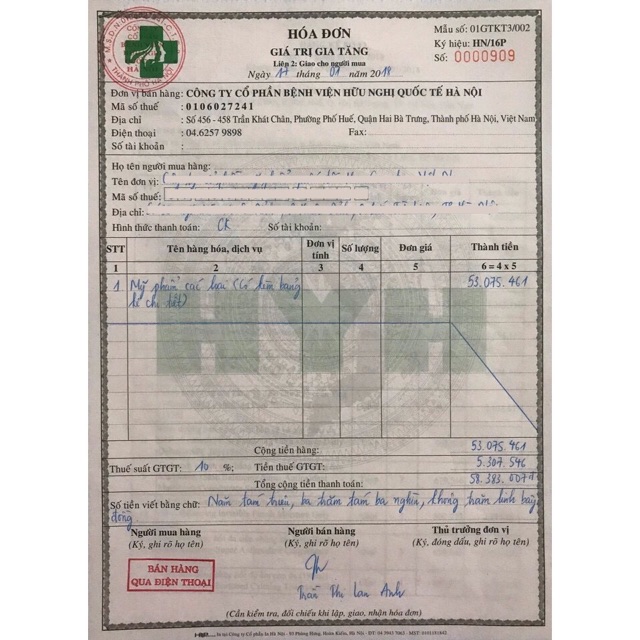 HÓA ĐƠN
GIÁ TRỊ GIA TĂNG
Liên 2: Giao cho người mua
Ngày 17 tháng 01 năm 2018
Mẫu số: 01GTKT3/002
Ký hiệu: HN/16P
Số: 0000909
Đơn vị bán hàng: CÔNG TY CỔ PHẦN BỆNH VIỆN HỮU NGHỊ QUỐC TẾ HÀ NỘI
Mã số thuế : 0106027241
Địa chỉ : Số 456 - 458 Trần Khát Chân, Phường Phố Huế, Quận Hai Bà Trưng, Thành phố Hà Nội, Việt Nam
Điện thoại : 04.6257 9898 Fax:
Số tài khoản :
Họ tên người mua hàng:
Tên đơn vị:
Mã số thuế:
Địa chỉ:
Hình thức thanh toán: CK Số tài khoản:
STT Tên hàng hóa, dịch vụ Đơn vị tính Số lượng Đơn giá Thành tiền
1 2 3 4 5 6 = 4 x 5
1 Mỹ phẩm các loại (Có kèm bảng 53.075.461
kê chi tiết)
HYH
Cộng tiền hàng: 53.075.461
Thuế suất GTGT: 10 %; Tiền thuế GTGT: 5.307.546
Tổng cộng tiền thanh toán: 58.383.007
Số tiền viết bằng chữ: Năm tám triệu, ba trăm tám ba nghìn, không trăm linh bảy
đồng
Người mua hàng Người bán hàng Thủ trưởng đơn vị
(Ký, ghi rõ họ tên) (Ký, ghi rõ họ tên) (Ký, đóng dấu, ghi rõ họ tên)
BÁN HÀNG
QUA ĐIỆN THOẠI
Trần Thị Lan Anh
(Cần kiểm tra, đối chiếu khi lập, giao, nhận hóa đơn)